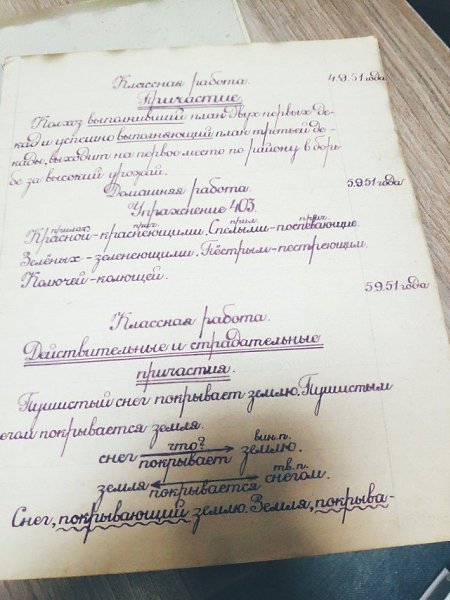 Классная работа. 4.9.51 года
Причастие.
Колхоз выполнивший план двух первых де-
кад и успешно выполняющий план третьей де-
кады, выходит на первое место по району в борь-
бе за высокий урожай.
Домашняя работа 5.9.51 года
Упражнение 403.
прилаг. прич. прил. прич.
Красной-краснеющими. Спелыми-поспевающие
Зелёных-зеленеющими. Пёстрым-пестреющим.
Колючей-колющей.
5.9.51 года
Классная работа.
Действительные и страдательные
причастия.
Пушистый снег покрывает землю. Пушистым
снегом покрывается земля.
что? вин.п.
снег покрывает землю.
тв.п.
земля покрывается снегом.
Снег, покрывающий землю. Земля, покрыва-